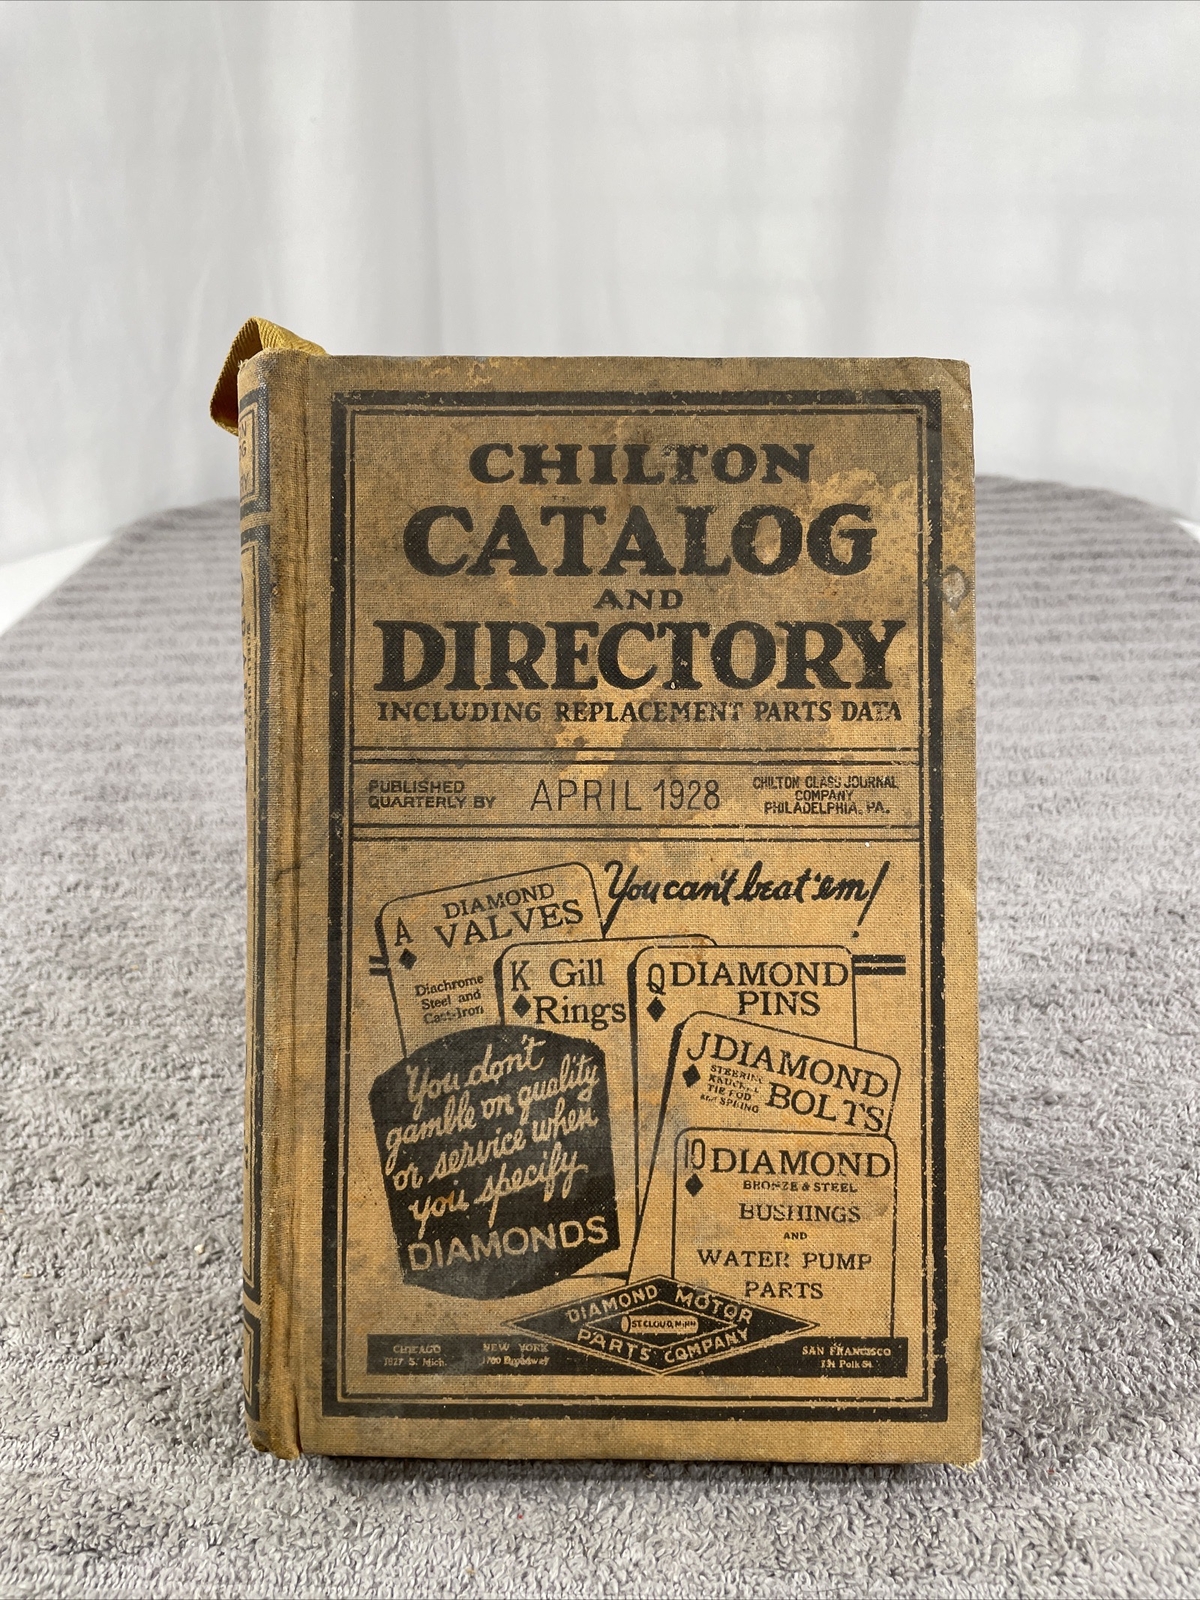 CHILTON
CATALOG
AND
DIRECTORY
INCLUDING REPLACEMENT PARTS DATA
PUBLISHED
QUARTERLY BY
APRIL 1928
CHILTON CLASS JOURNAL
COMPANY
PHILADELPHIA, PA.
You can't beat 'em!
A
DIAMOND
VALVES
Diachrome
Steel and
Cast-Iron
K Gill
Rings
Q DIAMOND
PINS
J DIAMOND
BOLTS
STEERING
KNUCKLE
TIE ROD
and SPRING
10 DIAMOND
BRONZE & STEEL
BUSHINGS
AND
WATER PUMP
PARTS
You don't
gamble on quality
or service when
you specify
DIAMONDS
DIAMOND MOTOR
ST. CLOUD, MINN
PARTS COMPANY
CHICAGO
S. Mich.
NEW YORK
1700 Broadway
SAN FRANCISCO
Polk St.